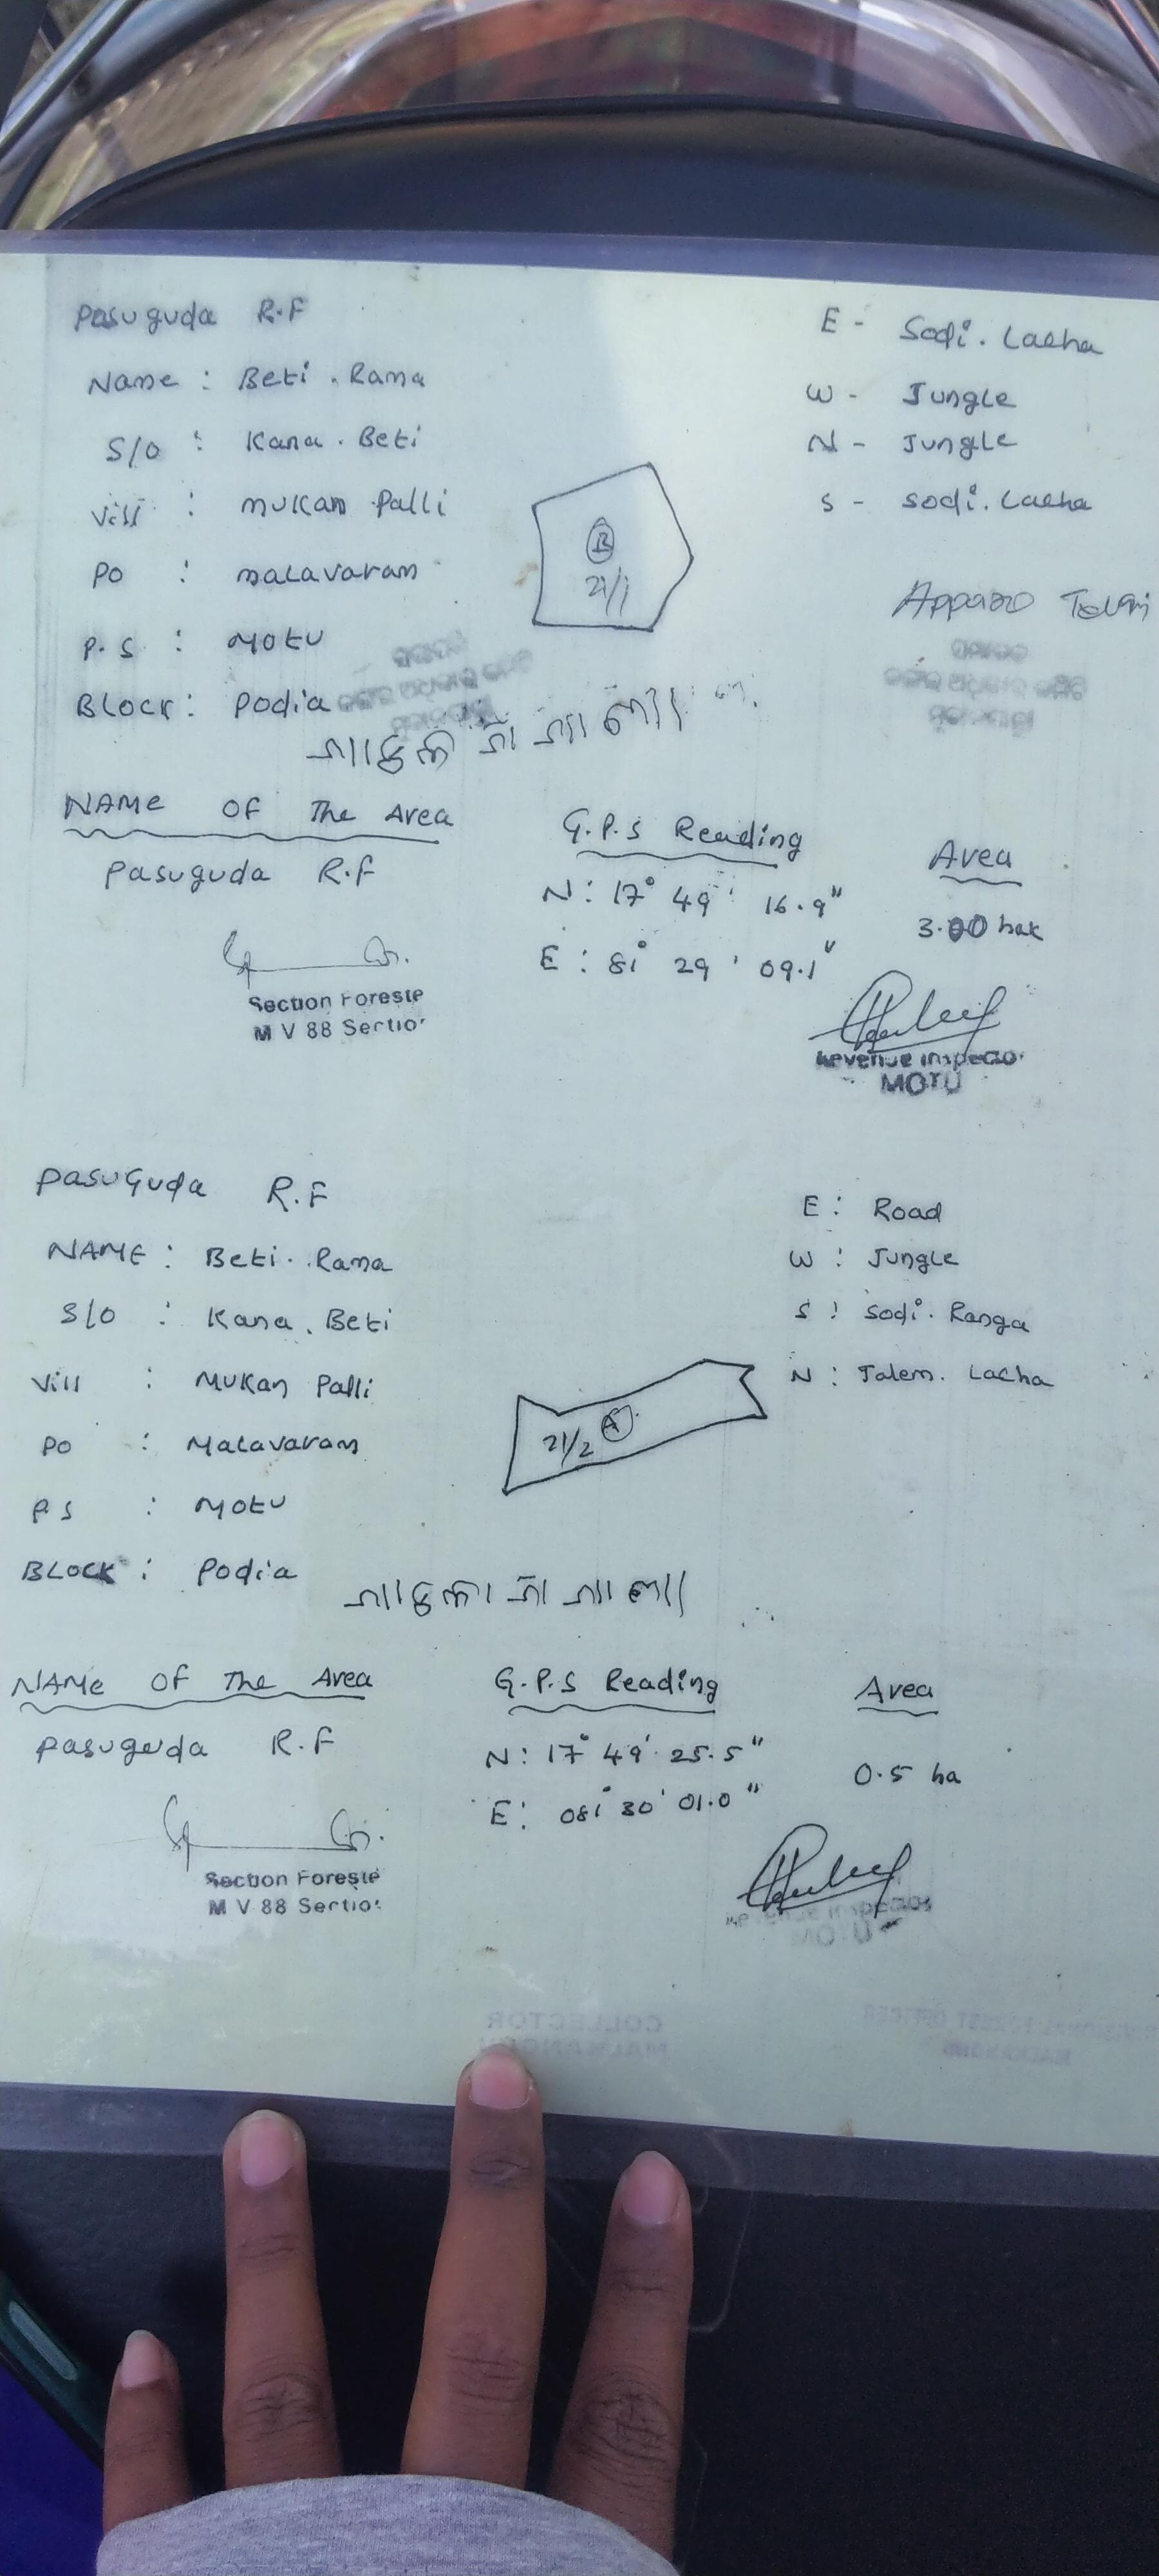 Pasuguda R.F
Name : Beti . Rama
S/o : Kana . Beti
Vill : Mukan Palli
PO : Malavaram
P.S : Motu
Block : Podia
E - Sodi . Lacha
W - Jungle
N - Jungle
S - Sodi . Lacha
B
21/1
Apparao
NAME OF The Area
Pasuguda R.F
G.P.S Reading
N : 17° 49' 16.9"
E : 81° 29' 09.1"
Area
3.00 hak
Section Foreste
M V 88 Sectio
Revenue Inspecto
MOTU
Pasuguda R.F
NAME : Beti . Rama
S/o : Kana . Beti
Vill : Mukan Palli
PO : Malavaram
P S : Motu
BLOCK : Podia
E : Road
W : Jungle
S : Sodi . Ranga
N : Talem . Lacha
21/2 A
NAME OF The Area
Pasuguda R.F
G.P.S Reading
N : 17° 49' 25.5"
E : 081° 30' 01.0"
Area
0.5 ha
Section Foreste
M V 88 Sectio
COLLECTOR